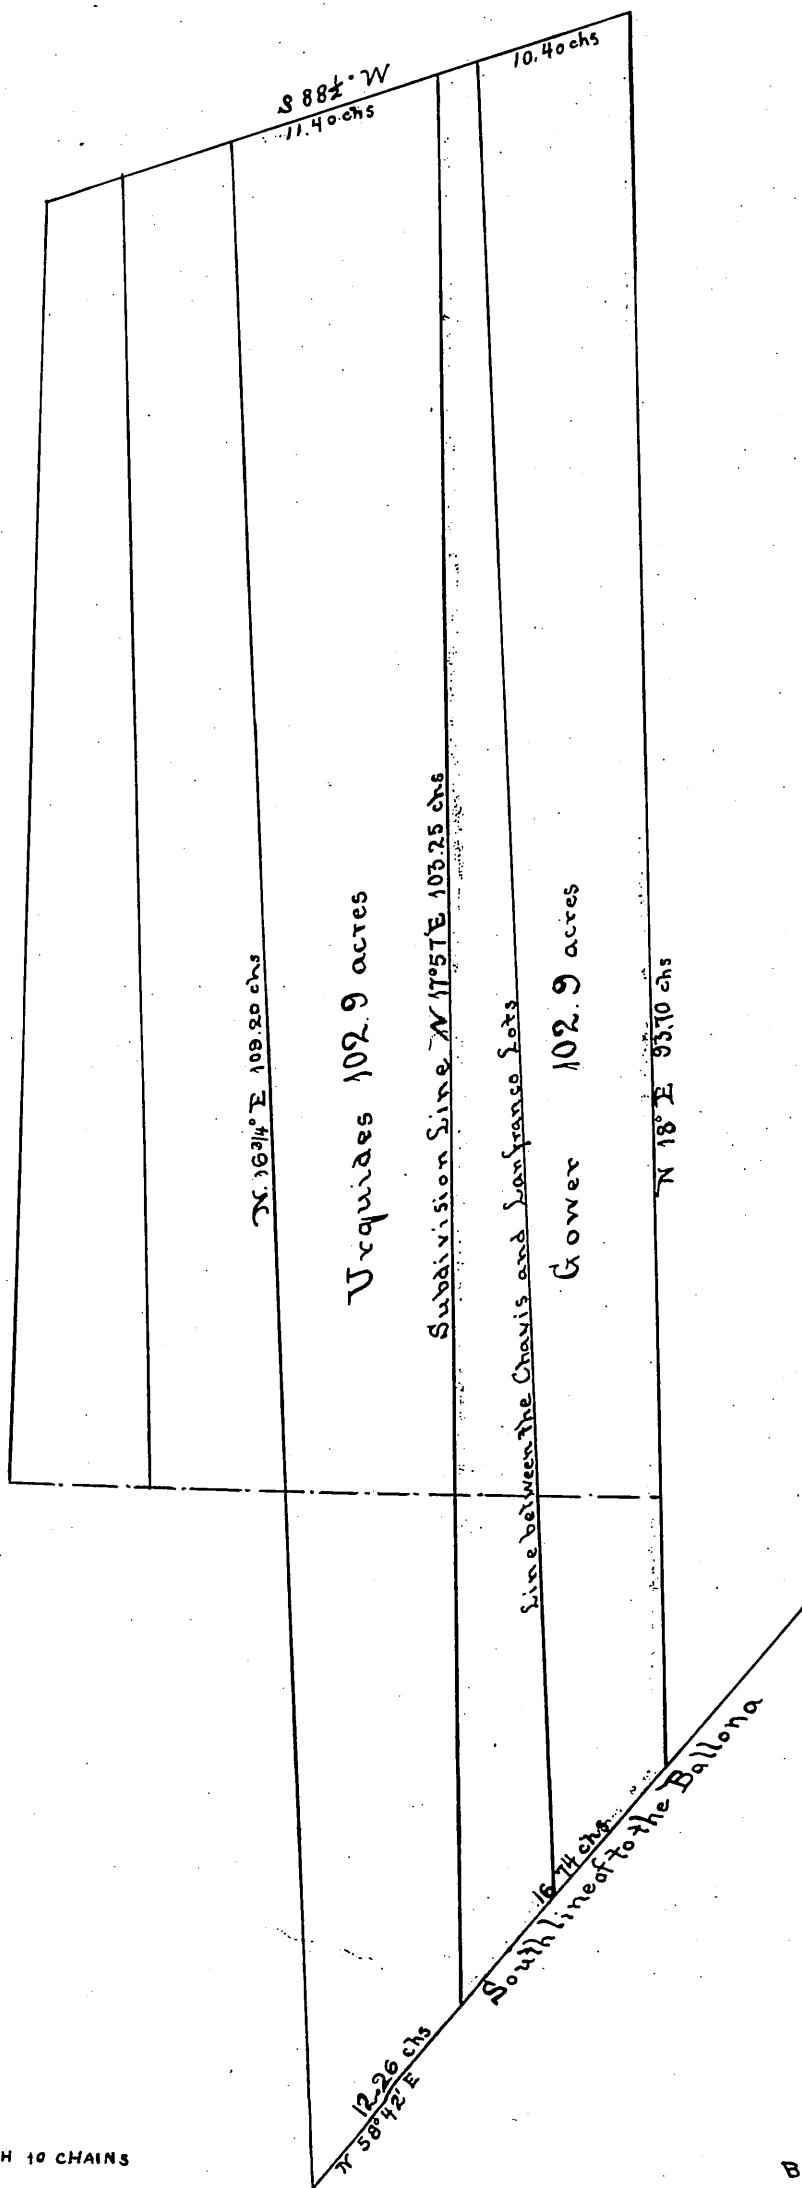 S 88½° W.
11.40 chs
10.40 chs
N. 16 3/4° E 109.20 chs
Urquides 102.9 acres
Subdivision Line N 17°57'E 103.25 chs
Line between the Chavis and Lanfranco Lots
Gower 102.9 acres
N 18° E 93.70 chs
16 74 chs.
South line of to the Ballona
12.26 chs
N 58° 42' E
H 10 CHAINS
B